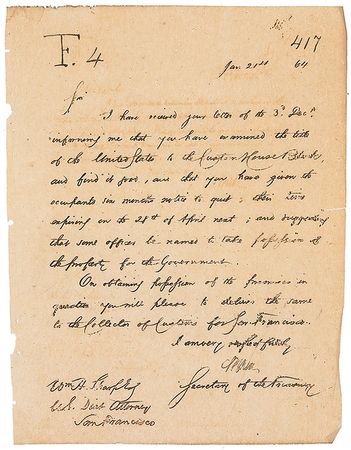 F. 4
417
Jan 21st 64
Sir
I have received your letter of the 3d Decr.
informing me that you have examined the title
of the United States to the Custom House Block,
and find it good, and that you have given the
occupants six months notice to quit; their
expiring on the 28th of April next; and suggesting
that some officer be named to take possession of
the property for the Government.
On obtaining possession of the premises in
question you will please to deliver the same
to the Collector of Customs for San Francisco.
I am very respectfully
Secretary of the Treasury
Wm H. Sharp Esq
U.S. Dist Attorney
San Francisco